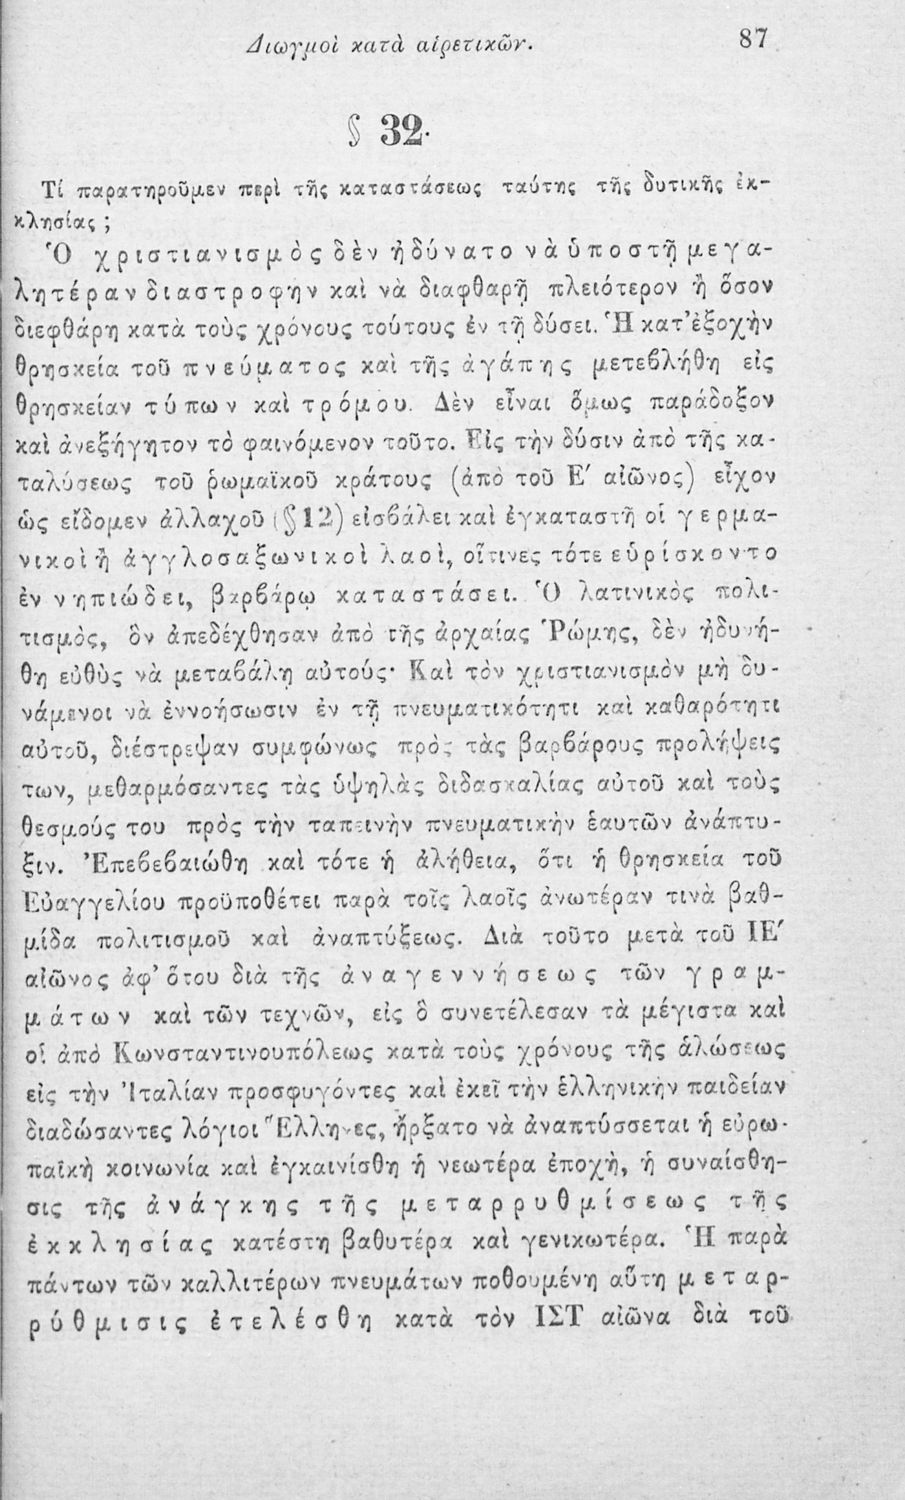 Διωγμοὶ κατὰ αἱρετικῶν. 87
§ 32.
Τί παρατηροῦμεν περὶ τῆς καταστάσεως ταύτης τῆς δυτικῆς ἐκ-
κλησίας ;
Ὁ χριστιανισμὸς δὲν ἠδύνατο νὰ ὑποστῇ μεγα-
λητέραν διαστροφὴν καὶ νὰ διαφθαρῇ πλειότερον ἢ ὅσον
διεφθάρη κατὰ τοὺς χρόνους τούτους ἐν τῇ δύσει. Ἡ κατ’ ἐξοχὴν
θρησκεία τοῦ πνεύματος καὶ τῆς ἀγάπης μετεβλήθη εἰς
θρησκείαν τύπων καὶ τρόμου. Δὲν εἶναι ὅμως παράδοξον
καὶ ἀνεξήγητον τὸ φαινόμενον τοῦτο. Εἰς τὴν δύσιν ἀπὸ τῆς κα-
ταλύσεως τοῦ ῥωμαϊκοῦ κράτους (ἀπὸ τοῦ Ε′ αἰῶνος) εἶχον
ὡς εἴδομεν ἀλλαχοῦ (§ 12) εἰσβάλει καὶ ἐγκαταστῆ οἱ γερμα-
νικοὶ ἢ ἀγγλοσαξωνικοὶ λαοὶ, οἵτινες τότε εὑρίσκοντο
ἐν νηπιώδει, βαρβάρῳ καταστάσει. Ὁ λατινικὸς πολι-
τισμὸς, ὃν ἀπεδέχθησαν ἀπὸ τῆς ἀρχαίας Ῥώμης, δὲν ἠδυνή-
θη εὐθὺς νὰ μεταβάλῃ αὐτούς· Καὶ τὸν χριστιανισμὸν μὴ δυ-
νάμενοι νὰ ἐννοήσωσιν ἐν τῇ πνευματικότητι καὶ καθαρότητι
αὐτοῦ, διέστρεψαν συμφώνως πρὸς τὰς βαρβάρους προλήψεις
των, μεθαρμόσαντες τὰς ὑψηλὰς διδασκαλίας αὐτοῦ καὶ τοὺς
θεσμούς του πρὸς τὴν ταπεινὴν πνευματικὴν ἑαυτῶν ἀνάπτυ-
ξιν. Ἐπεβεβαιώθη καὶ τότε ἡ ἀλήθεια, ὅτι ἡ θρησκεία τοῦ
Εὐαγγελίου προϋποθέτει παρὰ τοῖς λαοῖς ἀνωτέραν τινὰ βαθ-
μίδα πολιτισμοῦ καὶ ἀναπτύξεως. Διὰ τοῦτο μετὰ τοῦ ΙΕ′
αἰῶνος ἀφ’ ὅτου διὰ τῆς ἀναγεννήσεως τῶν γραμ-
μάτων καὶ τῶν τεχνῶν, εἰς ὃ συνετέλεσαν τὰ μέγιστα καὶ
οἱ ἀπὸ Κωνσταντινουπόλεως κατὰ τοὺς χρόνους τῆς ἁλώσεως
εἰς τὴν Ἰταλίαν προσφυγόντες καὶ ἐκεῖ τὴν ἑλληνικὴν παιδείαν
διαδώσαντες λόγιοι Ἕλληνες, ἤρξατο νὰ ἀναπτύσσεται ἡ εὐρω-
παϊκὴ κοινωνία καὶ ἐγκαινίσθη ἡ νεωτέρα ἐποχὴ, ἡ συναίσθη-
σις τῆς ἀνάγκης τῆς μεταρρυθμίσεως τῆς
ἐκκλησίας κατέστη βαθυτέρα καὶ γενικωτέρα. Ἡ παρὰ
πάντων τῶν καλλιτέρων πνευμάτων ποθουμένη αὕτη μεταρ-
ρύθμισις ἐτελέσθη κατὰ τὸν ΙΣΤ αἰῶνα διὰ τοῦ